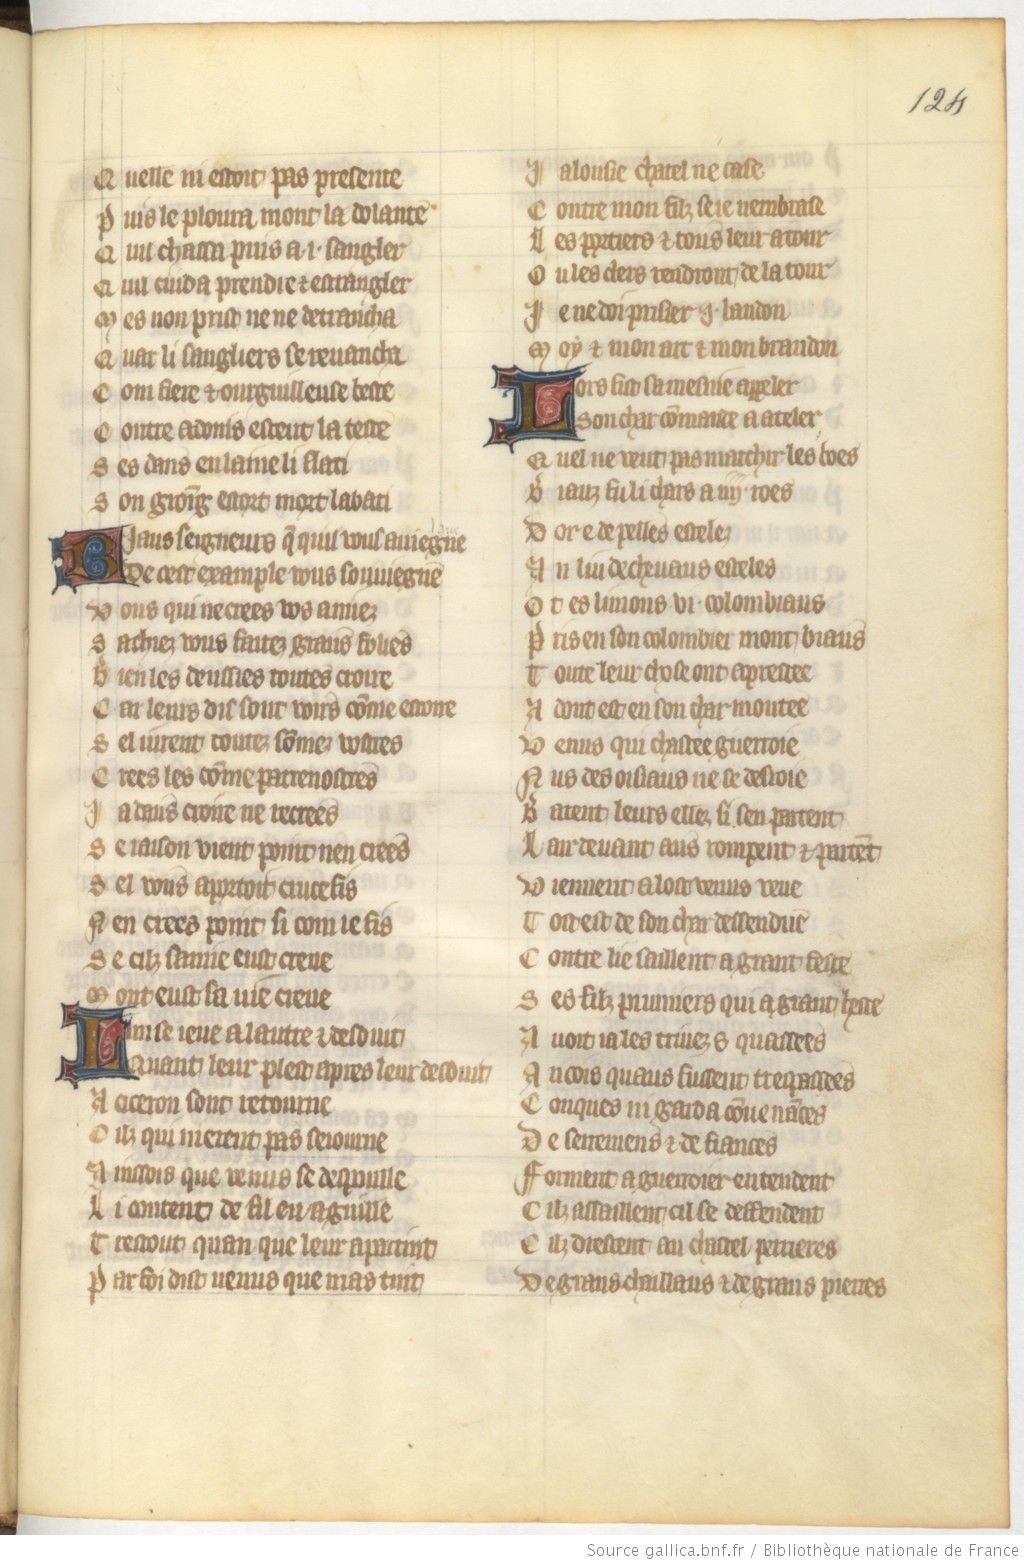 124
Q uelle ni estoit pas presente
P uis le ploura mont la dolante
Q ui chaca puis a .i. sangler
Q ui cuida prendre et estrangler
M es non prist ne ne detrancha
Q uar li sangliers se revancha
C om fiere et ourguilleuse beste
C ontre adonis estent la teste
S es dans en laine li flati
S on groing estort mort labati
B iaus seigneurs q̄ quil vous aviegne
De cest example vous souviegne
V ous qui ne crees vos amiez
S achiez vous faitez grans folies
B ien les deussies toutes croire
C ar leurs dis sont voirs cōme estoire
S el iurent toutez sōmez vostres
C rees les cōme patrenostres
J a dans croire ne recrees
S e raison vient point nen crees
S el vous aportoit crucefis
N en crees point si com ie fis
S e cilz samie eust creue
M ont eust sa vie creue
L un se ieue a lautre et desduit
Quant leur plest apres leur desduit
A ciceron sont retourne
C ilz qui nierent pas seiourne
A insois que venus se despuille
L i content de fil en aguille
T restout quan que leur apartint
P ar foi dist venus que mas tint
J alousie chatel ne case
C ontre mon filz se ie nembrase
L es portiers et tous leur atour
O u les clers rendront de la tour
J e ne doi prisier .j. landon
M oy et mon arc et mon brandon
L ors fist sa mesnie appeler
Son char cōmande a ateler
Q uel ne veut pas marchir les boes
B iauz fu li chars a iiij roes
D or e de pelles estelez
A n lui de chevaus esteles
O t es limons vi. colombiaus
P ris en son colombier mont biaus
T oute leur chose ont aprestee
A dont est en son char montee
V enus qui chastee guerroie
N us des oisiaus ne se desroie
B atent leurs ellez si sen partent
L air devant aus rompent et partēt
V iennent a lost venus veue
T ost est de son char dessendue
C ontre lie saillent a grant feste
S es filz prumiers qui a grant heste
A voit ia les trivez quassees
A ncois quaus fussent trespassees
C onques ni garda cōvenāces
D e seremens et de fiances
F orment a guerroier entendent
C ilz assaillent cil se deffendent
C ilz drescent au chastel perrieres
D e grans chaillaus et de grans pierres
Source gallica.bnf.fr / Bibliothèque nationale de France